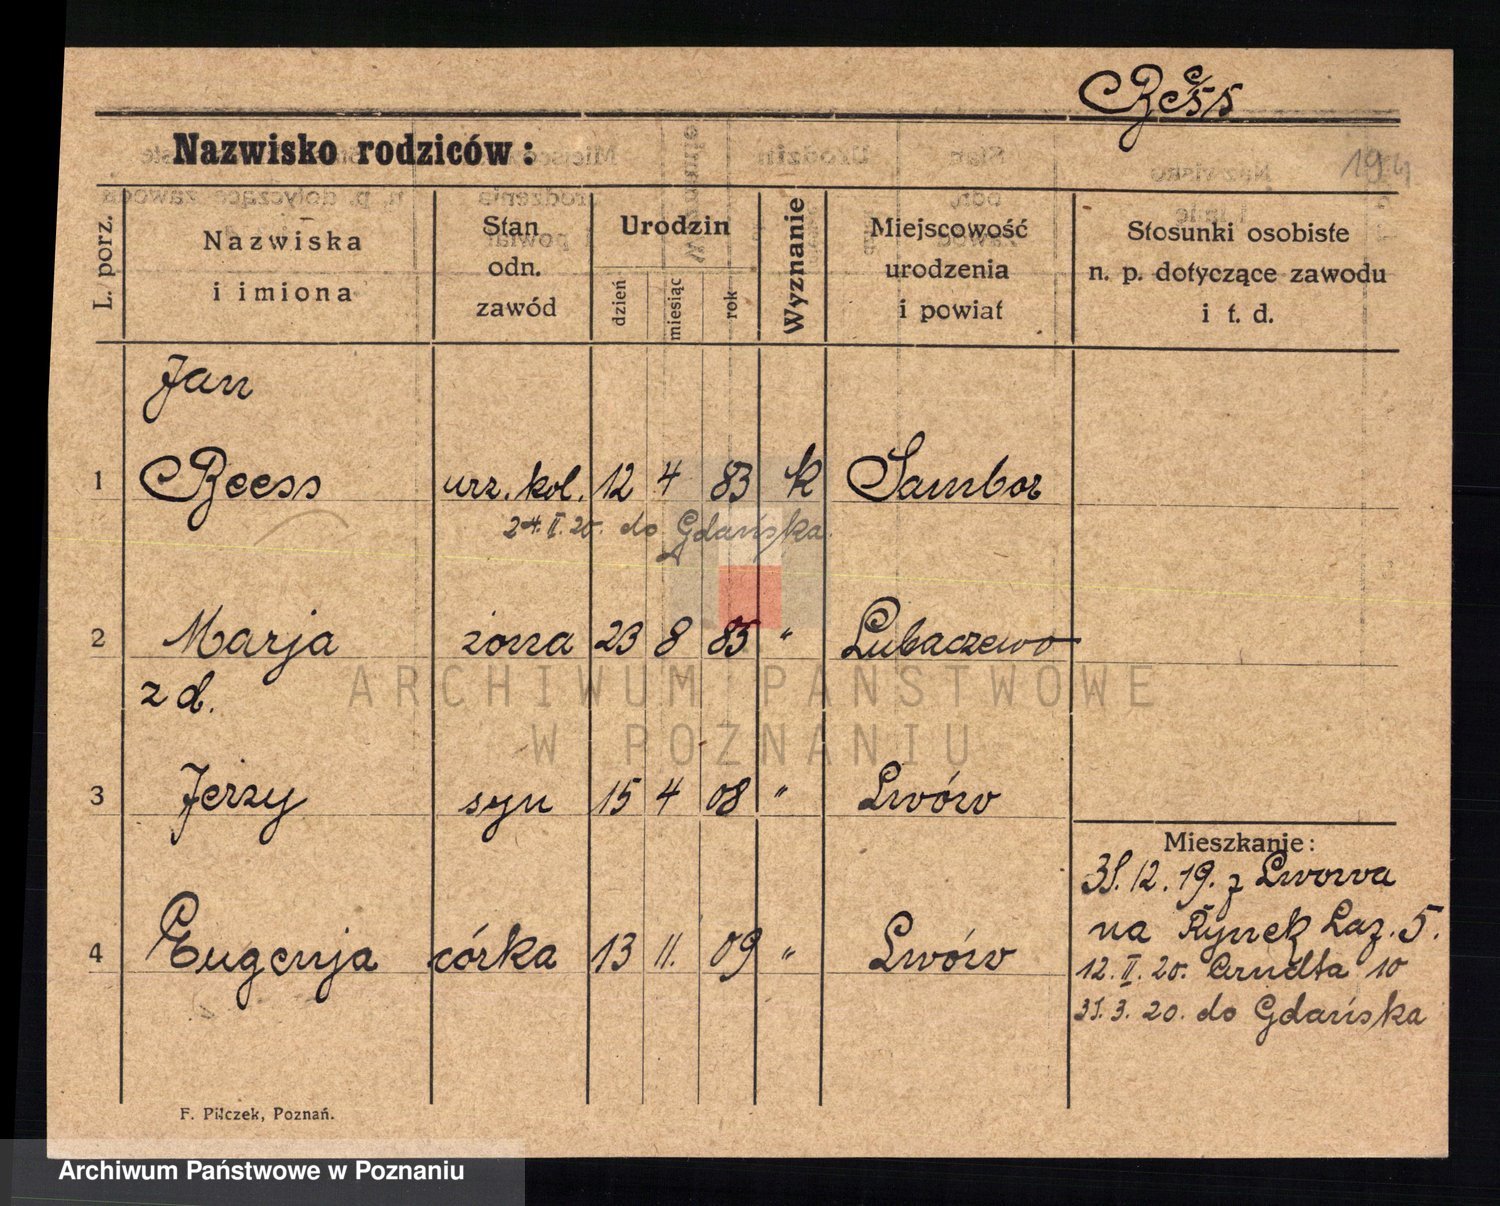 Reess
Nazwisko rodziców:
194
L. porz.
Nazwiska
i imiona
Stan
odn.
zawód
Urodzin
dzień
miesiąc
rok
Wyznanie
Miejscowość
urodzenia
i powiat
Stosunki osobiste
n. p. dotyczące zawodu
i t. d.
Jan
1 Reess urz. kol. 12 4 83 k Sambor
24. II. 20. do Gdańska.
2 Marja żona 23 8 85 " Lubaczewo
z d.
ARCHIWUM PAŃSTWOWE
W POZNANIU
3 Jerzy syn 15 4 08 " Lwów
Mieszkanie:
31. 12. 19. z Lwowa
na Rynek Łaz. 5.
4 Eugenja córka 13 11. 09 " Lwów
12. II. 20. Arndta 10
31. 3. 20. do Gdańska
F. Pilczek, Poznań.
Archiwum Państwowe w Poznaniu